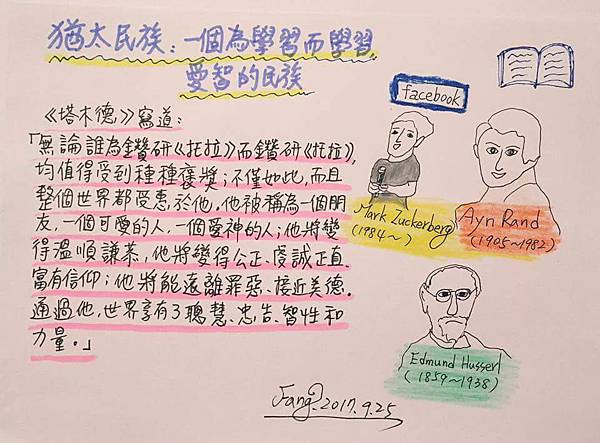 猶太民族：一個為學習而學習，
愛智的民族
《塔木德》寫道：
「無論誰為鑽研《托拉》而鑽研《托拉》，
均值得受到種種褒獎；不僅如此，而且
整個世界都受惠於他。他被稱為一個朋
友，一個可愛的人，一個愛神的人；他將變
得溫順謙恭，他將變得公正、虔誠正直、
富有信仰；他將能遠離罪惡、接近美德。
通過他，世界享有了聰慧、忠告、智性和
力量。」
facebook
Mark Zuckerberg
(1984~)
Ayn Rand
(1905~1982)
Edmund Husserl
(1859~1938)
Fang. 2017.9.25